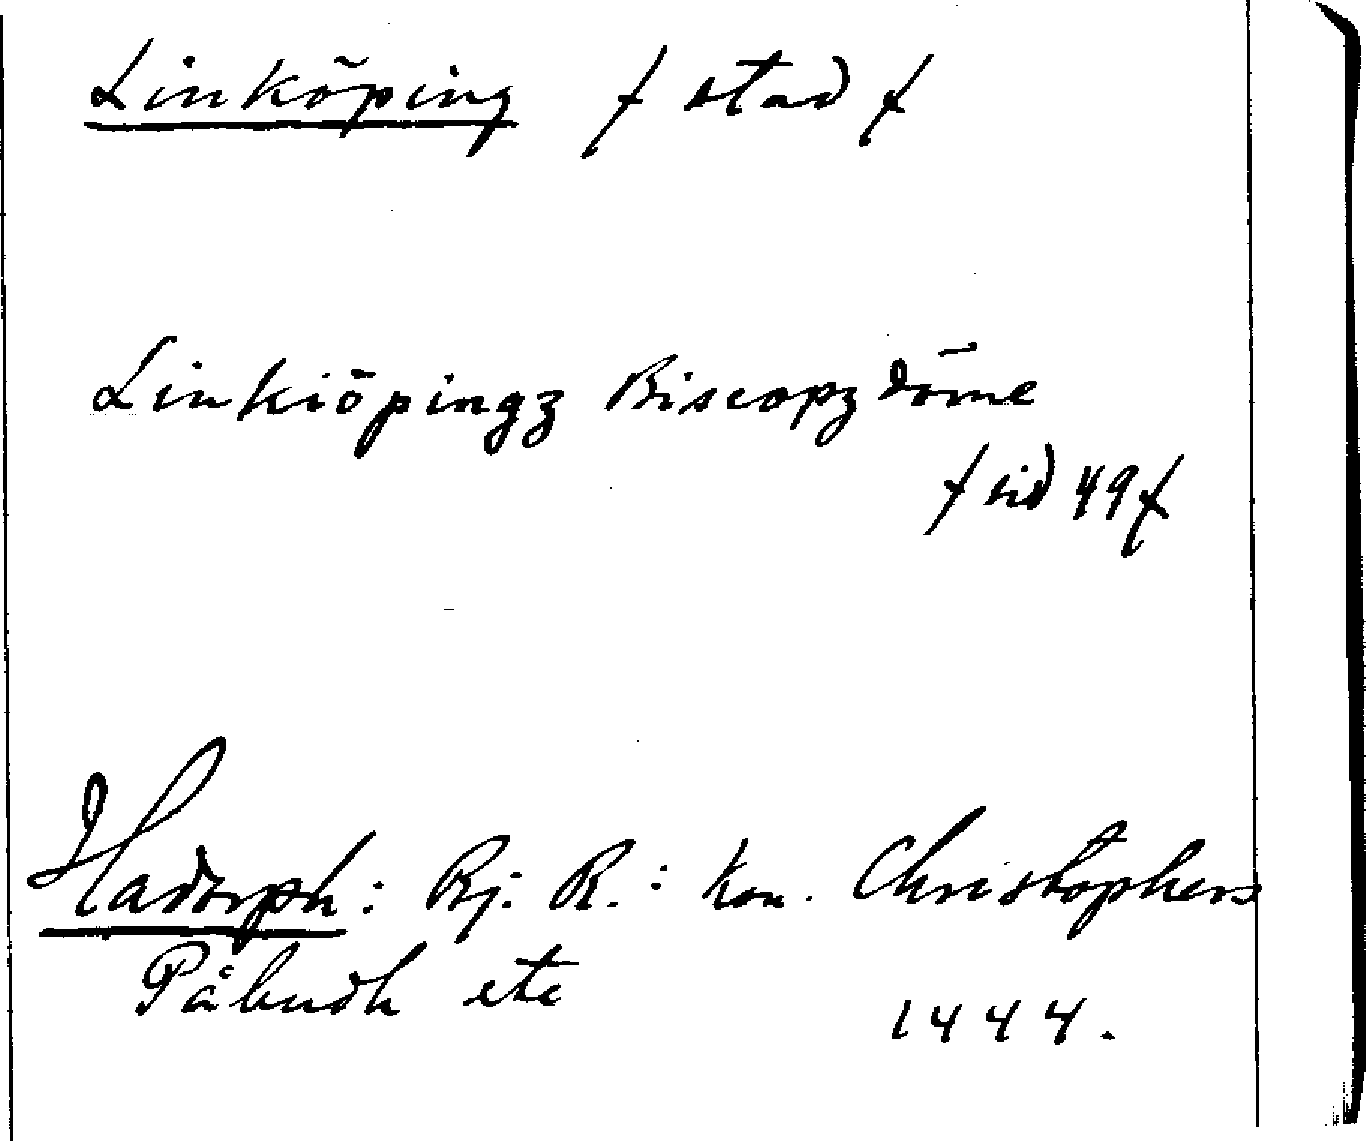 Linköping / stad /
Linkiöpingz Biscopzdöme
/ sid 49 /
Hadorph: Bj. R.: Kon. Christophers
Påbudh etc
1444.